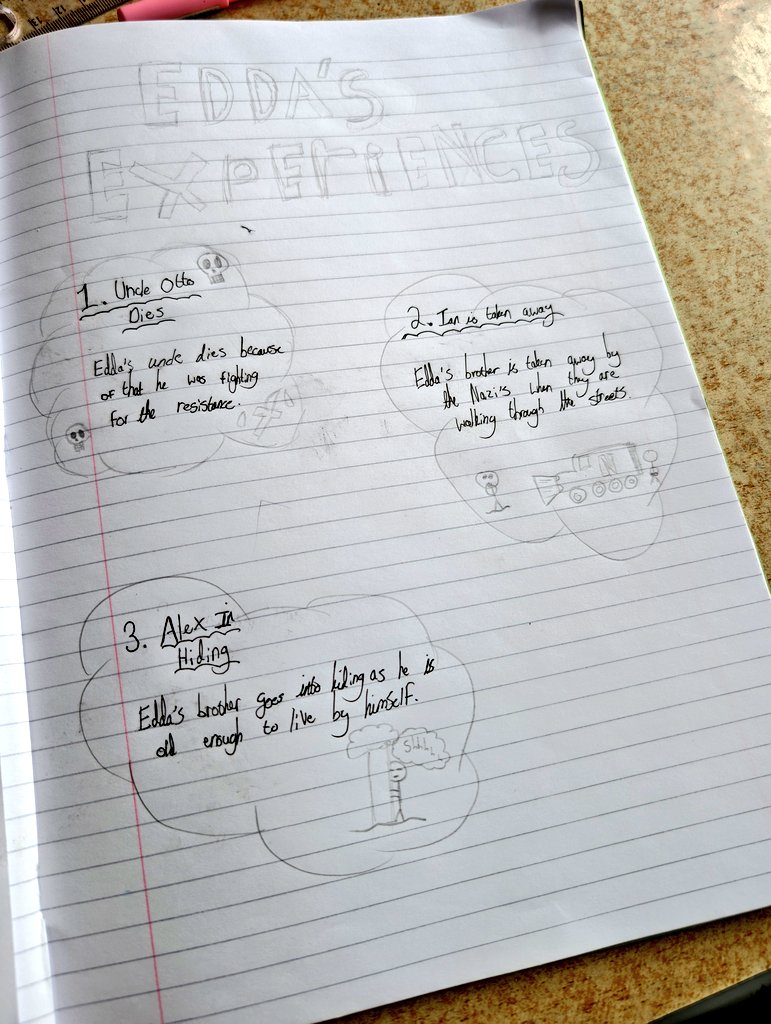 EDDA'S
EXPERIENCES
1. Uncle Otto
Dies
Edda's uncle dies because
of that he was fighting
for the resistance.
2. Ian is taken away
Edda's brother is taken away by
the Nazi's when they are
walking through the streets.
N
3. Alex In
Hiding
Edda's brother goes into hiding as he is
old enough to live by himself.